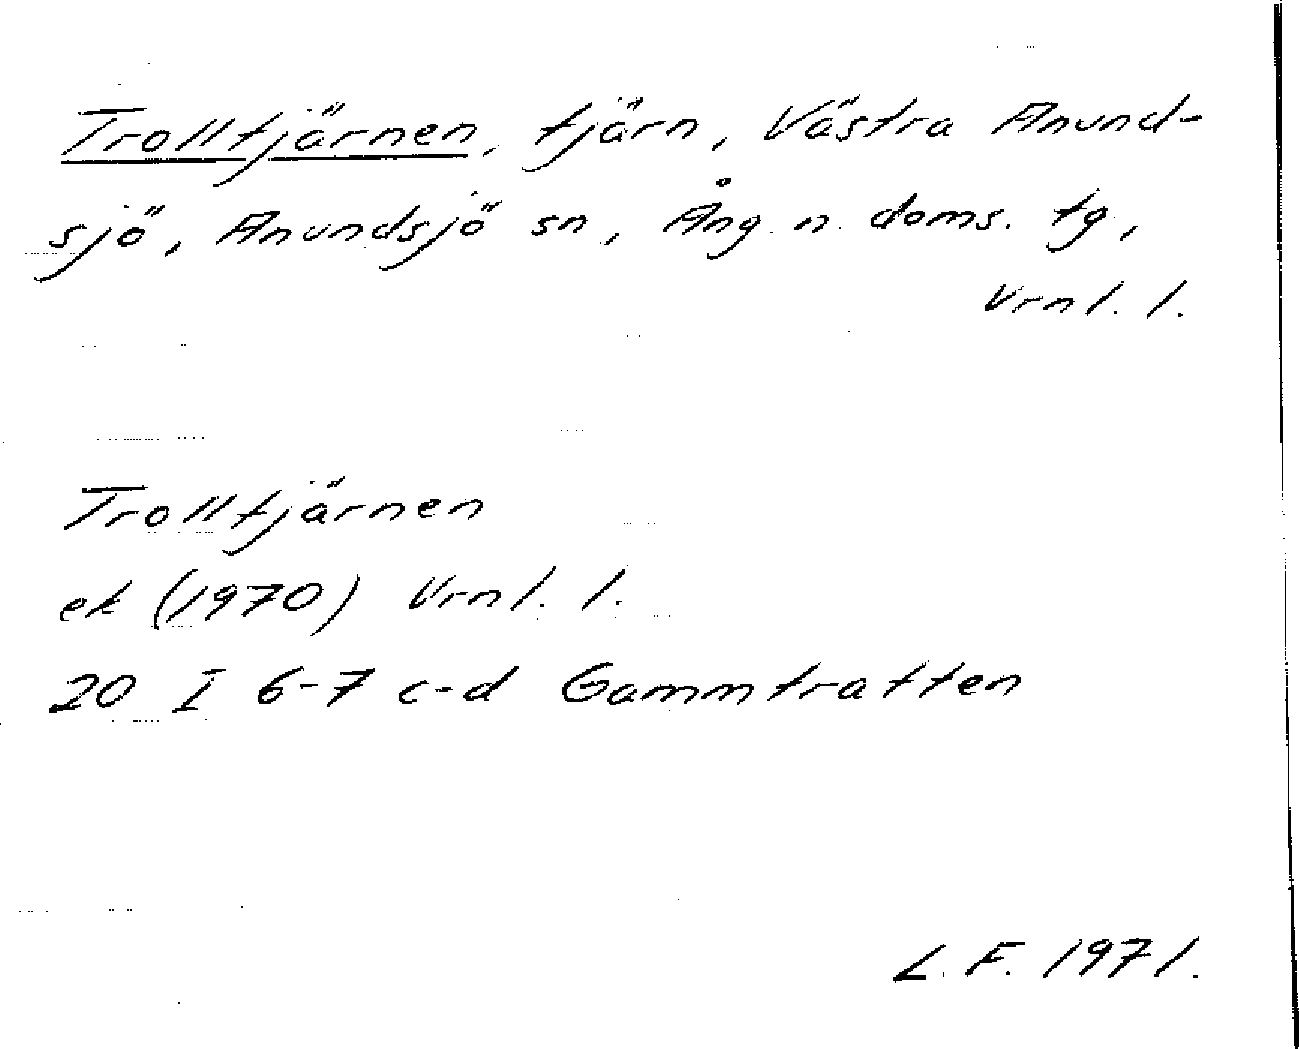 Trolltjärnen, tjärn, Västra Anund-
sjö, Anundsjö sn, Ång. n. doms. tg,
Vrnl. l.
Trolltjärnen
ek (1970) Vrnl. l.
20 I 6-7 c-d Gammtratten
L. F. 1971.